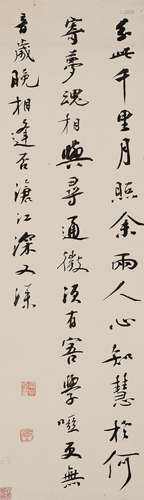 此千里月照余兩人心知慧於何
寄夢魂相與尋通微須有害學啞更無
音歲晚相逢否滄江深又深